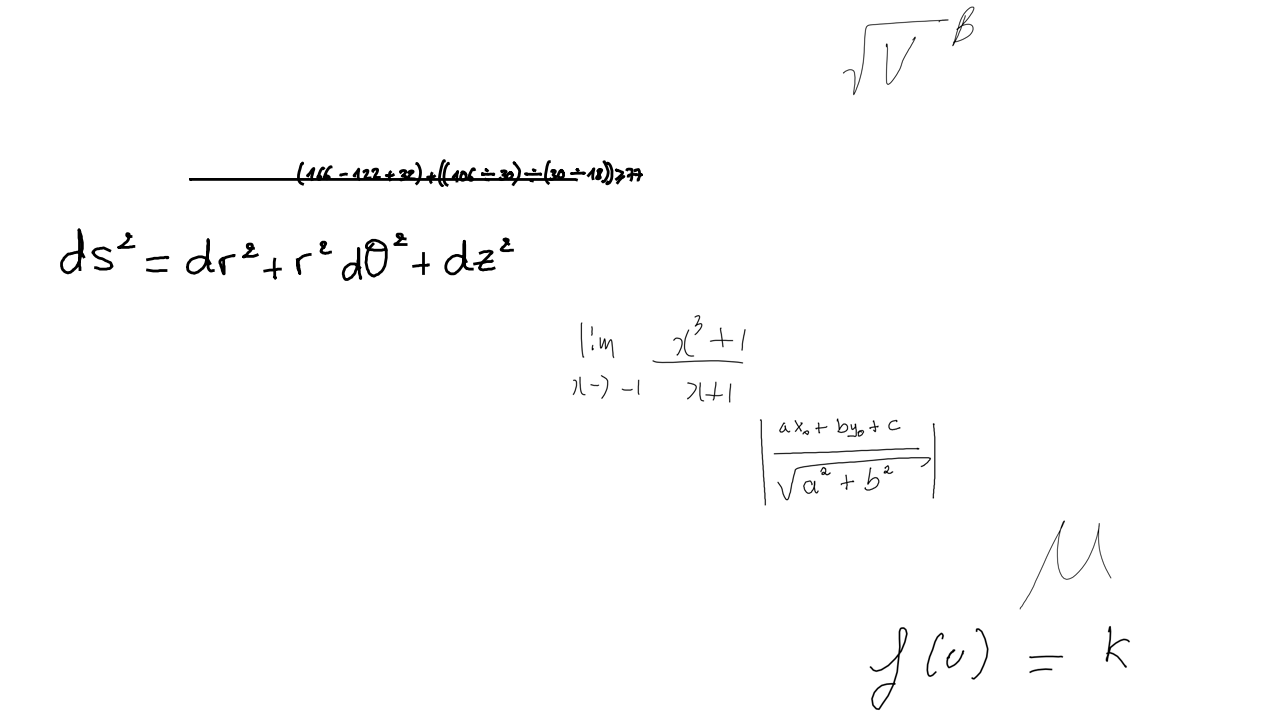 √V^B
(166 - 122 + 32) + ((106 ÷ 30) ÷ (30 ÷ 18)) ≥ 77
ds² = dr² + r² dθ² + dz²
lim x³ + 1
x -> -1 x + 1
ax₀ + by₀ + c
√a² + b²
μ
f(0) = k